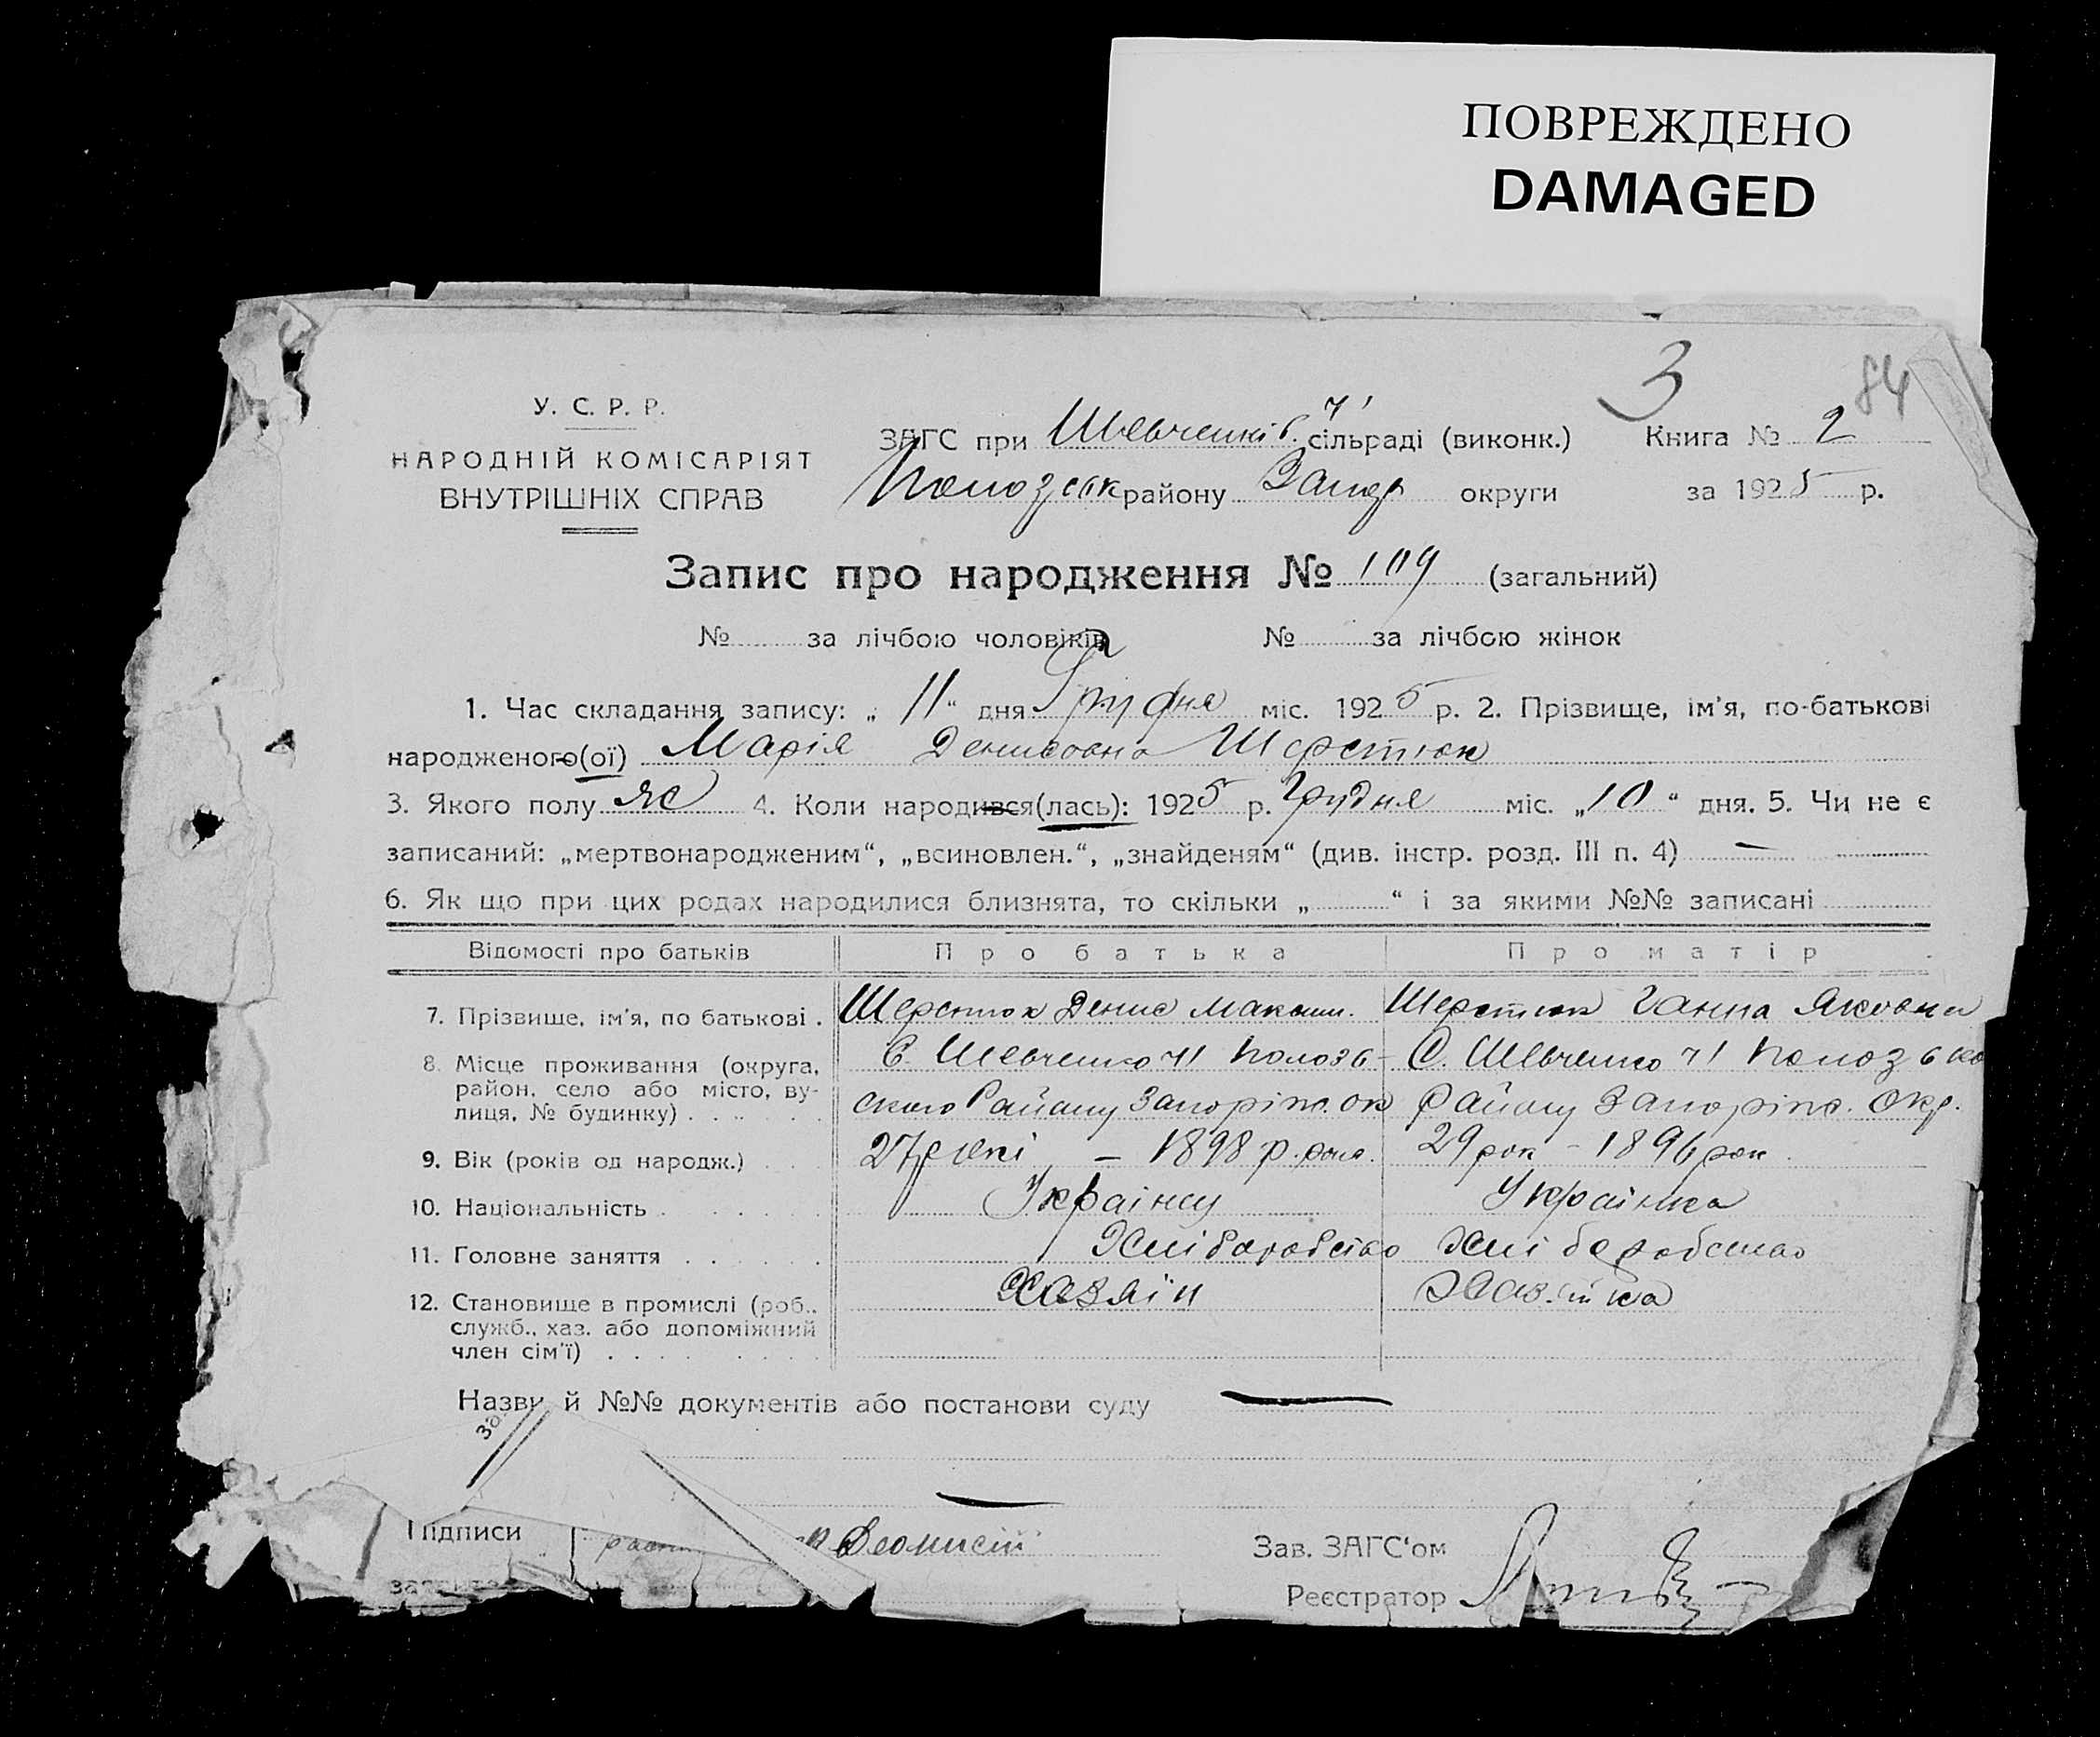 ПОВРЕЖДЕНО
DAMAGED
3 84
У. С. Р. Р.
НАРОДНІЙ КОМІСАРІЯТ
ВНУТРІШНІХ СПРАВ
ЗАГС при Шевченків. сільраді (виконк.) Книга № 2
району Запор округи за 1925 р.
Запис про народження № 109 (загальний)
№ за лічбою чоловіків № за лічбою жінок
1. Час складання запису: „11“ дня Грудня міс. 1925 р. 2. Прізвище, ім'я, по-батькові
народженого(ої) Марія Денисовна Шерстюк
3. Якого полу же 4. Коли народився(лась): 1925 р. Грудня міс. „10“ дня. 5. Чи не є
записаний: „мертвонародженим“, „всиновлен.“, „знайденям“ (див. інстр. розд. III п. 4) —
6. Як що при цих родах народилися близнята, то скільки „ “ і за якими №№ записані
Відомості про батьків Про батька Про матір
7. Прізвище, ім'я, по батькові . Шерстюк Денис Максим. Шерстюк Ганна Яковна
8. Місце проживання (округа, С. Шевченко 71 С. Шевченко 71
район, село або місто, ву- ського Району Запоріж. ок Району Запоріж. Окр.
лиця, № будинку) . . . . . .
9. Вік (років од народж.) . . . 27 – 1898 р. 29 рок – 1896 рок
10. Національність . . . . . . . Українец Українка
11. Головне заняття . . . . . . Хліборобство Хліборобство
12. Становище в промислі (роб., Хазяін Хазяйка
служб., хаз. або допоміжний
член сім'ї) . . . . . . . . .
Назви й №№ документів або постанови суду —
Підписи Зав. ЗАГС'ом
Реєстратор